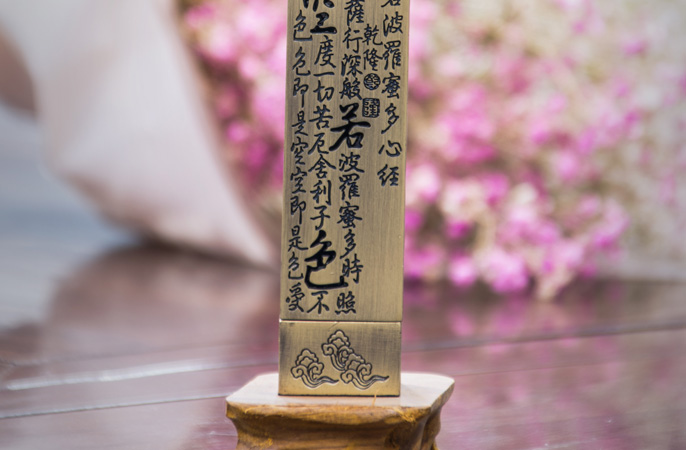 若波羅蜜多心經
乾隆
薩行深般若波羅蜜多時照
度一切苦厄舍利子色不
色色即是空空即是色受